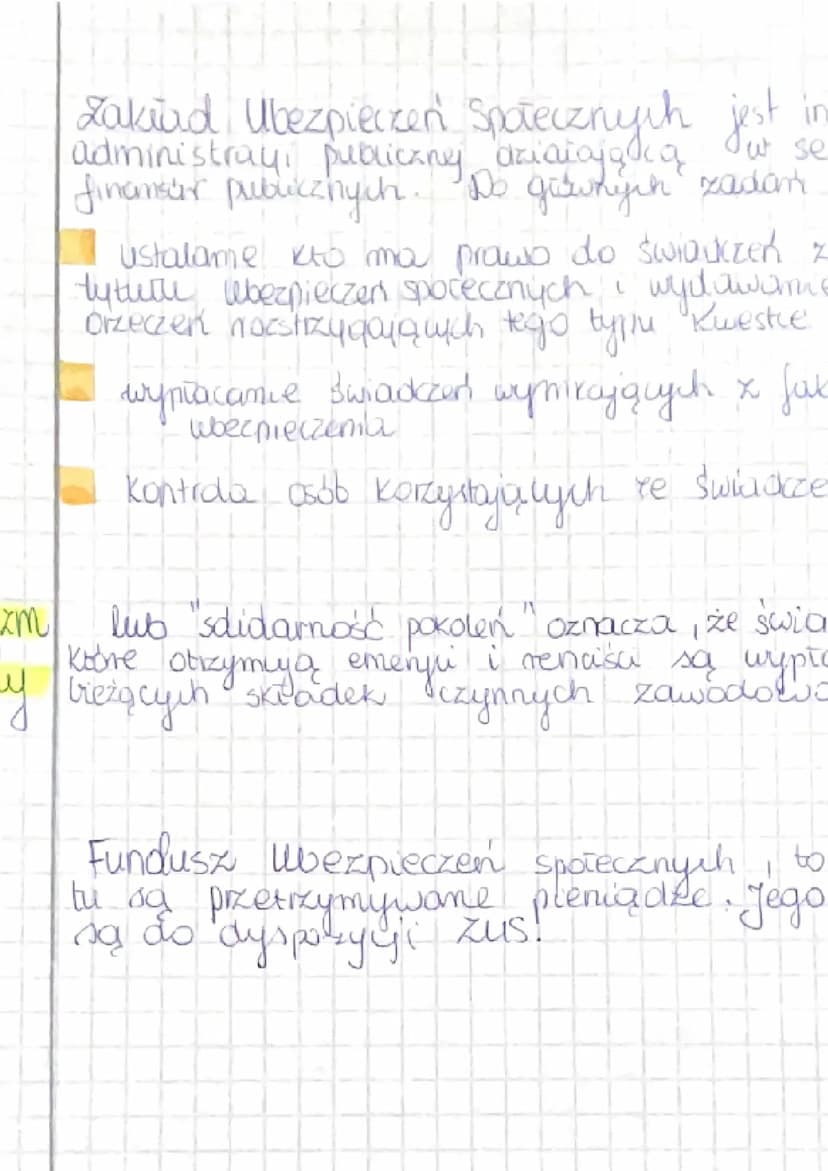 Zakład Ubezpieczeń Społecznych jest in
administracji publicznej działającą w se
finansów publicznych. Do głównych zadań
ustalanie kto ma prawo do świadczeń z
tytułu ubezpieczeń społecznych i wydawanie
orzeczeń rozstrzygających tego typu kwestie
wypłacanie świadczeń wynikających z fak
ubezpieczenia
Kontrola osób korzystających ze świadcze
zm lub "solidarność pokoleń" oznacza, że świa
które otrzymują emeryci i renciści są wypła
y bieżących składek czynnych zawodowo
Fundusz Ubezpieczeń społecznych, to
tu są przetrzymywane pieniądze. Jego
są do dyspozycji ZUS!